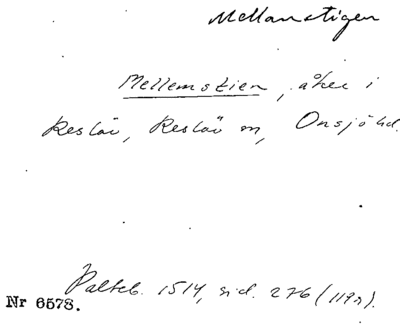 Mellanstigen
Mellemstien, åker i
Reslöv, Reslöv sn, Onsjö hd.
Palteb. 1514, sid. 276 (119r).
Nr 6578.